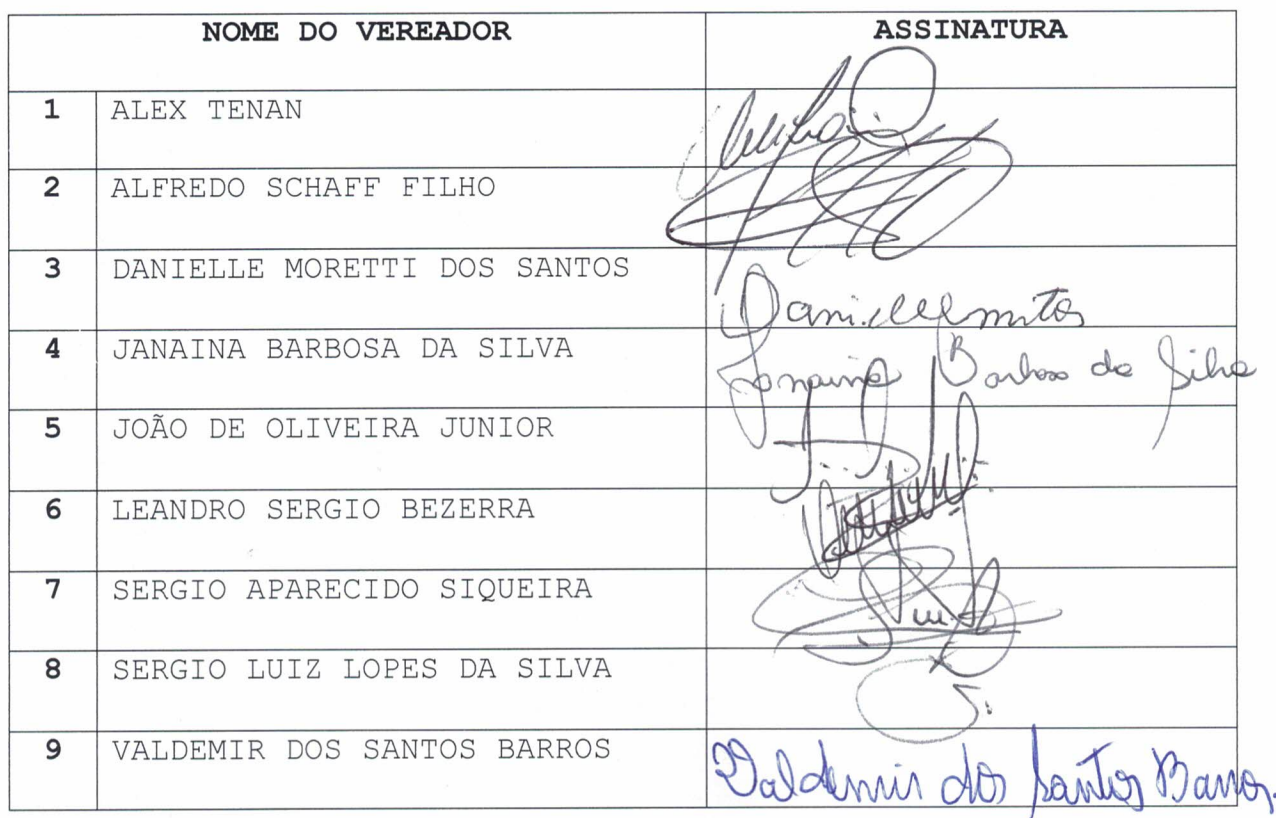 NOME DO VEREADOR ASSINATURA
1 ALEX TENAN
2 ALFREDO SCHAFF FILHO
3 DANIELLE MORETTI DOS SANTOS
4 JANAINA BARBOSA DA SILVA Janaina Barbosa da Silva
5 JOÃO DE OLIVEIRA JUNIOR
6 LEANDRO SERGIO BEZERRA
7 SERGIO APARECIDO SIQUEIRA
8 SERGIO LUIZ LOPES DA SILVA
9 VALDEMIR DOS SANTOS BARROS Valdemir dos Santos Barros.